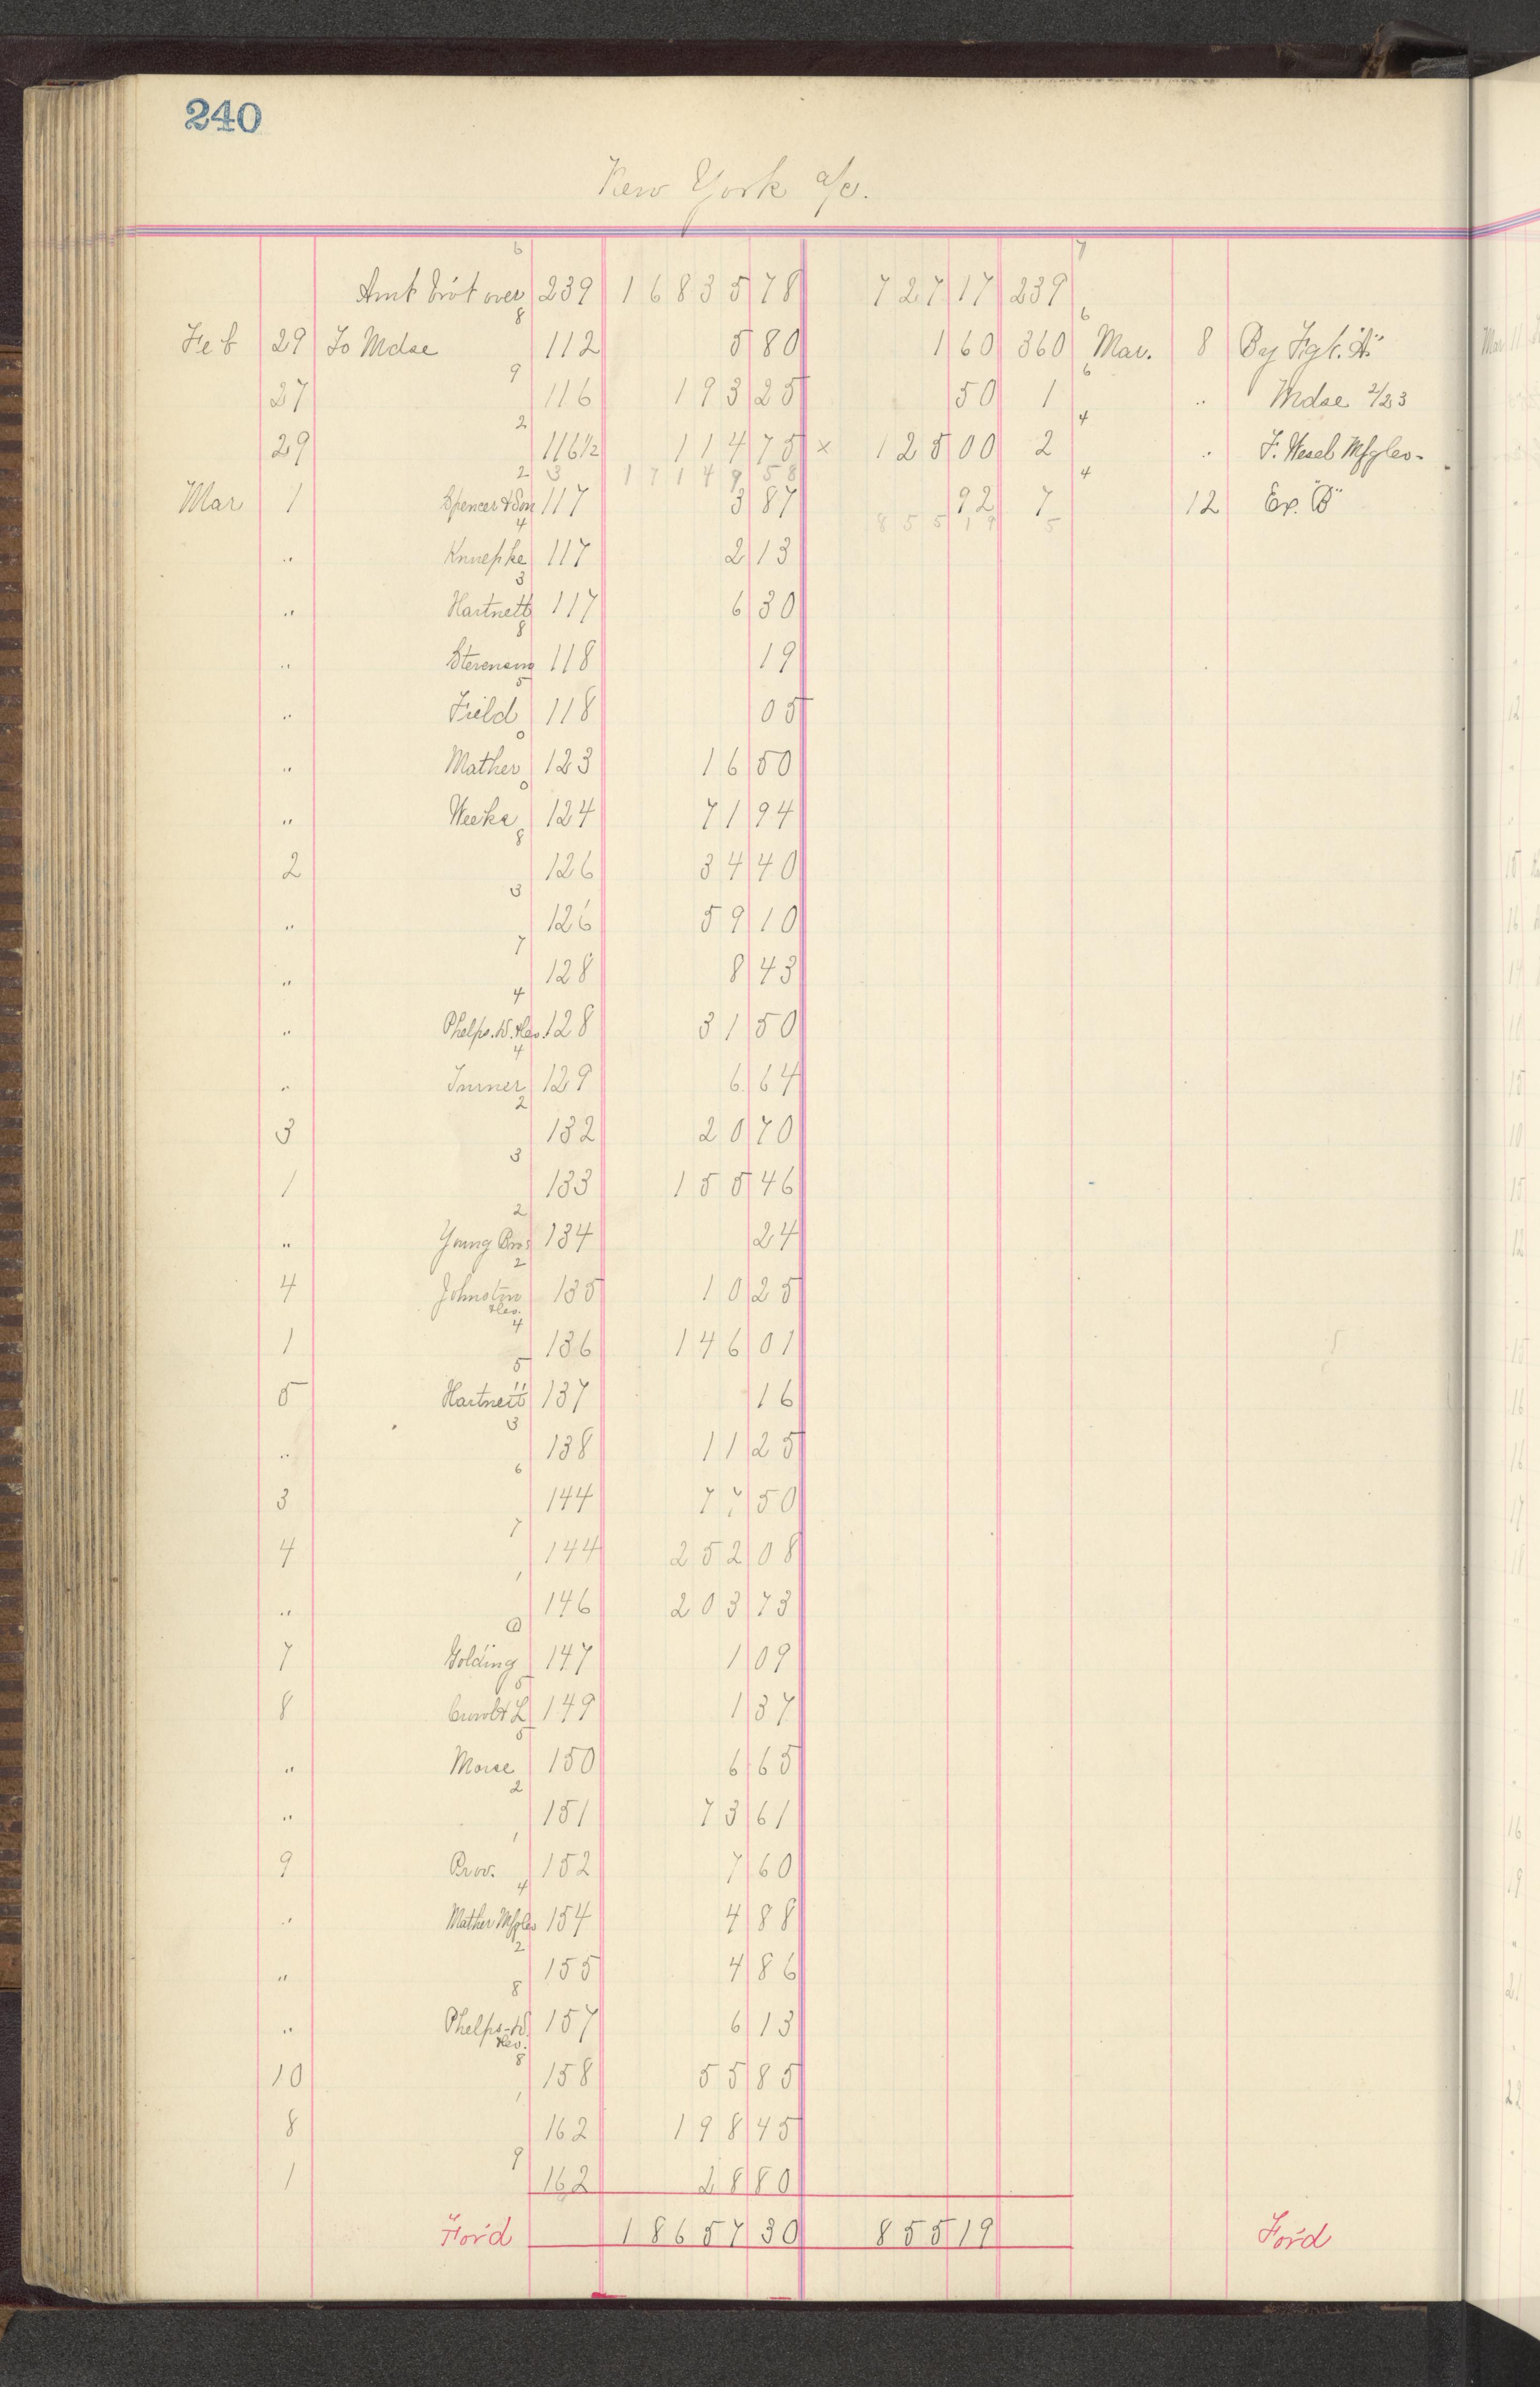 240
New York a/c.
6 7
Amt bro't over 239 16835 78 727 17 239
8 6
Feb 29 To Mdse 112 5 80 1 60 360 Mar. 8 By Fgt. "A"
9 6
27 116 193 25 50 1 " Mdse 2/23
2 4
29 116½ 114 75 x 125 00 2 " F. Wesel Mfg Co.
2 3 17149 58 4
Mar 1 Spencer & Son 117 3 87 92 7 12 Ex. "B"
4 855 19 5
" Knuepke 117 2 13
3
" Hartnett 117 6 30
8
" Stevenson 118 19
5
" Field 118 05
0
" Mather 123 16 50
0
" Weeks 124 71 94
8
2 126 34 40
3
" 126 59 10
7
" 128 8 43
4
" Phelps. D. & Co. 128 31 50
4
" Turner 129 6 64
2
3 132 20 70
3
1 133 155 46
2
" Young Bros 134 24
2
4 Johnston & Co. 135 10 25
4
1 136 146 01
5
5 Hartnett 137 16
3
" 138 11 25
6
3 144 77 50
7
4 144 252 08
1
" 146 203 73
7 Golding 147 1 09
5
8 149 1 37
5
" Morse 150 6 65
2
" 151 73 61
1
9 Prov. 152 7 60
4
" Mather Mfg Co 154 4 88
2
" 155 4 86
8
" Phelps-D. & Co. 157 6 13
8
10 158 55 85
1
8 162 198 45
9
1 162 28 80
For'd 18657 30 855 19 For'd